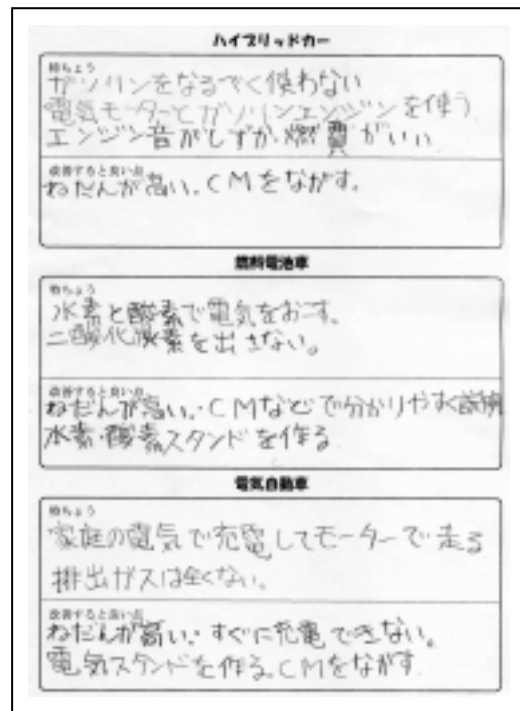 ハイブリッドカー
特ちょう
ガソリンをなるべく使わない
電気モーターとガソリンエンジンを使う
エンジン音がしずか・燃費がいい
改善すると良い点
ねだんが高い。CMをながす。
燃料電池車
特ちょう
水素と酸素で電気をおこす。
二酸化炭素を出さない。
改善すると良い点
ねだんが高い。・CMなどで分かりやすく説明
水素・酸素スタンドを作る
電気自動車
特ちょう
家庭の電気で充電してモーターで走る
排出ガスは全くない。
改善すると良い点
ねだんが高い・すぐに充電できない。
電気スタンドを作る。CMをながす